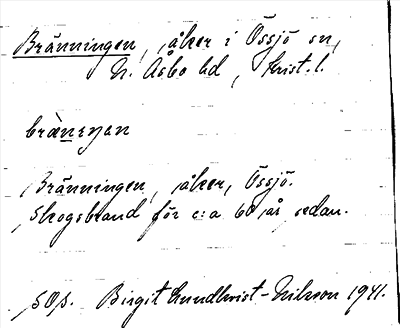 Bränningen, åker i Össjö sn,
N. Åsbo hd, Krist. l.
brànеŋan
Bränningen, åker, Össjö.
Skogsbrand för c:a 60 år sedan.
SOS. Birgit Lundkvist-Nilsson 1941.